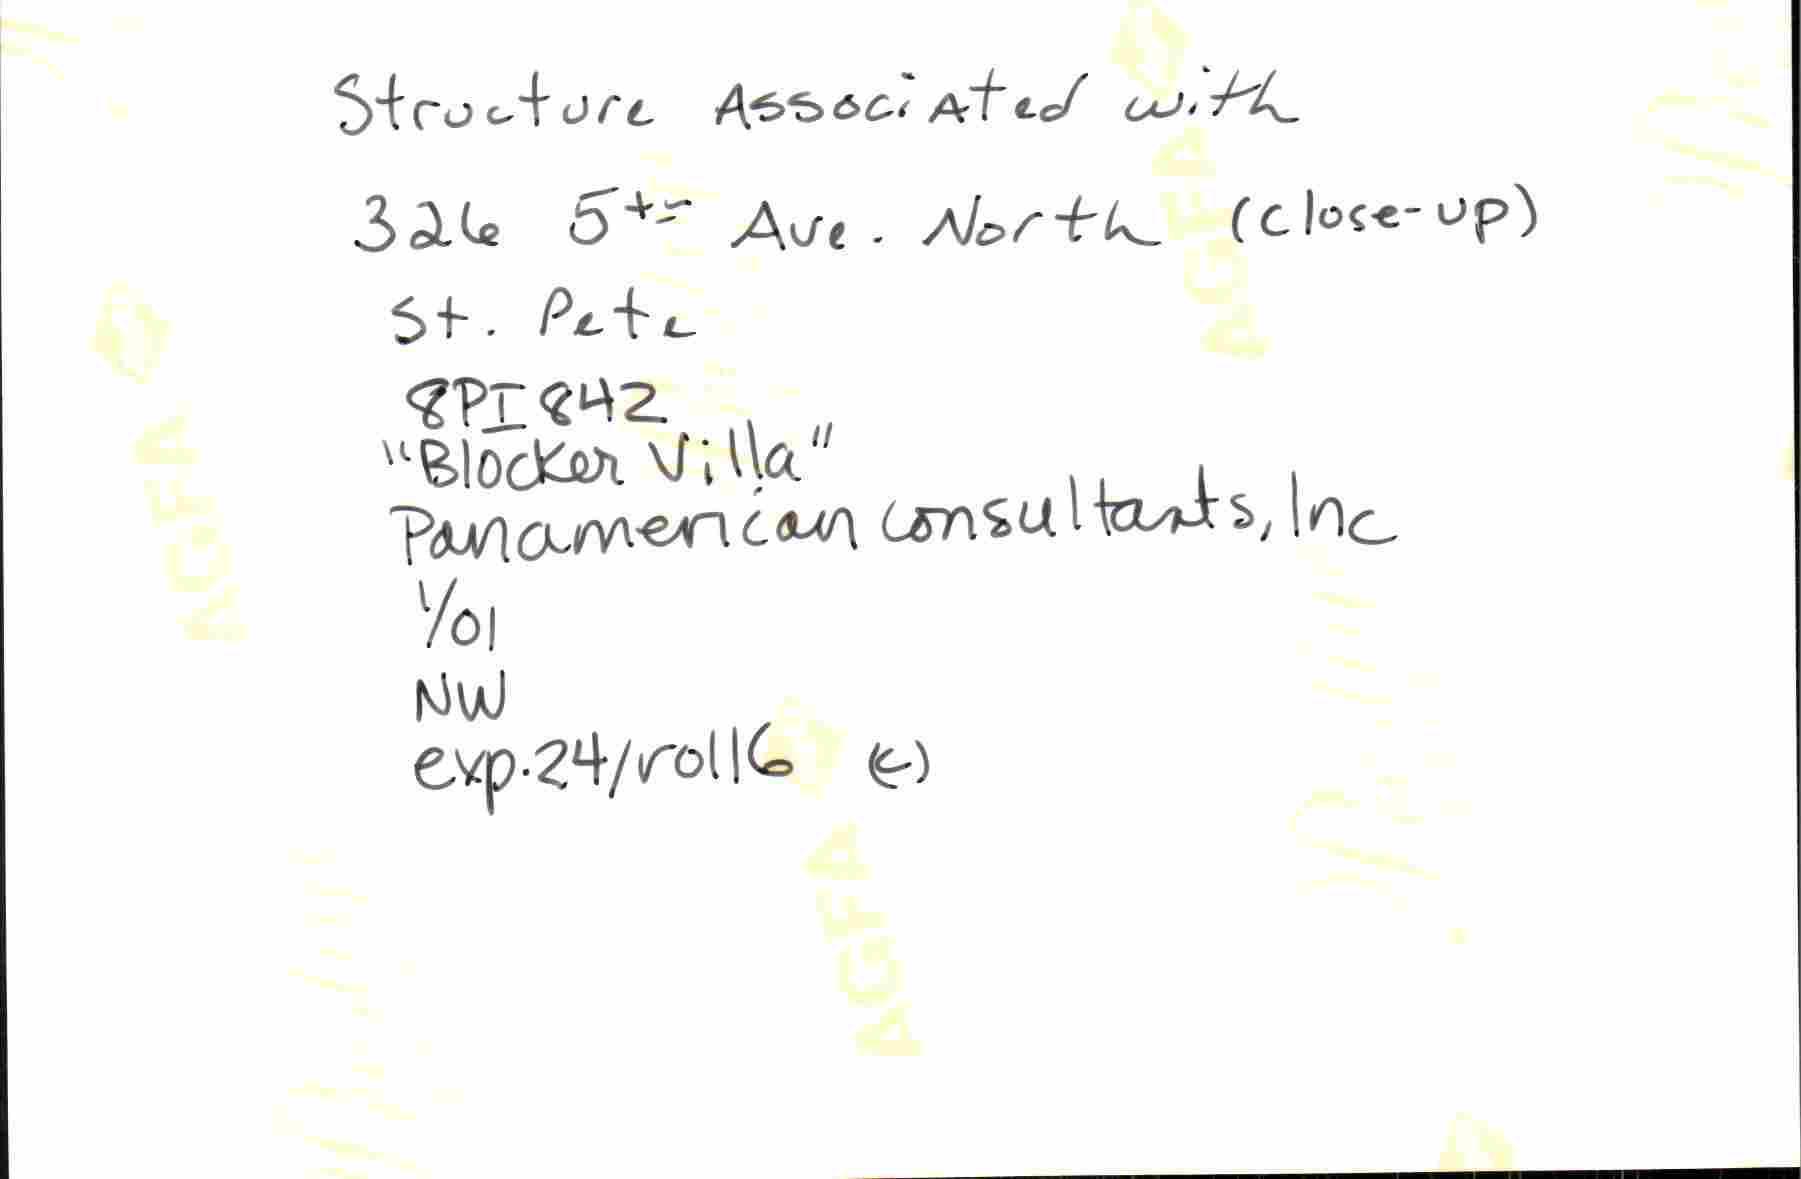 Structure Associated with
326 5th Ave. North (close-up)
St. Pete
8PI842
"Blocker Villa"
Panamerican consultants, Inc
1/01
NW
exp.24/roll6 (c)
AGFA
AGFA
AGFA